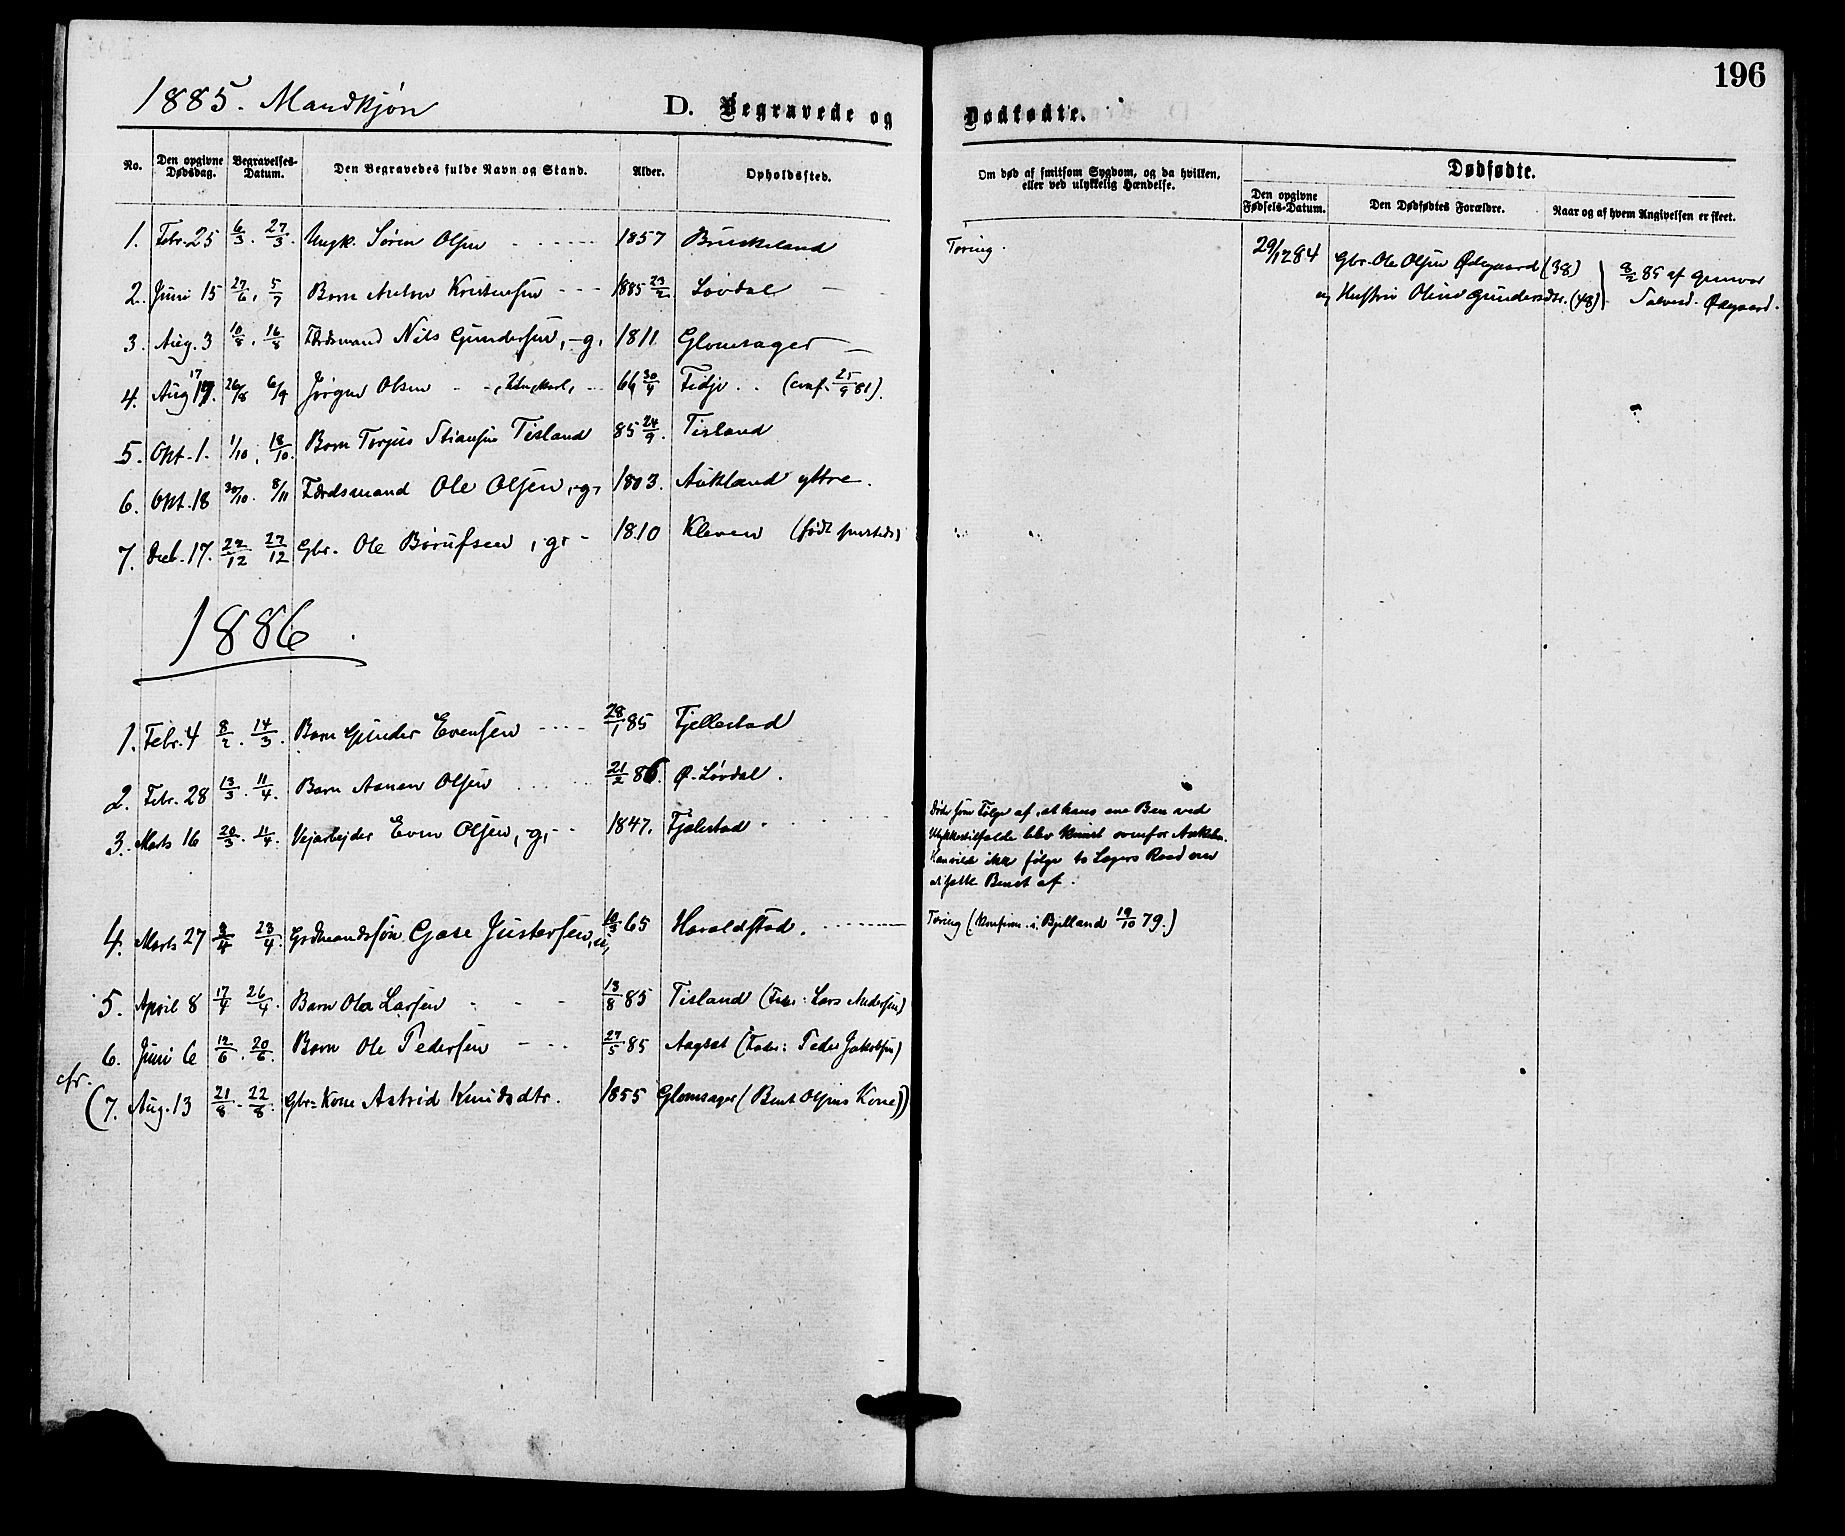 196
1885. Mandkjøn
D. Begravede og Dødfødte.
No. Den opgivne Dødsdag. Begravelses-Datum. Den Begravedes fulde Navn og Stand. Alder. Opholdssted. Om død af smitsom Sygdom, og da hvilken, eller ved ulykkelig Hændelse. Dødfødte.
Den opgivne Fødsels-Datum. Den Dødfødtes Forældre. Naar og af hvem Angivelsen er skeet.
1. Febr. 25 6/3. 27/3. Ungk. Sören Olsen 1857 Tæring.
29/12 84 Gbr. Ole Olsen Ødegaard (38)
og Hustru Oline Gundersdtr. (48)
8/2 85 af Gunvor
Salvesd. Ødegaard.
2. Juni 15 27/6. 5/7 Barn Kristensen 1885 23/2. Lövdal
3. Aug. 3 10/8. 16/8 Nils Gundersen, -g, 1811 Glomsager
4. Aug 17. 26/8 6/9 Jörgen Olsen 30/4 Fidje (conf. 25/9 81).
5. Okt. 1. 1/10. 18/10. Barn Torjus Stiansen Tisland 85 24/9. Tisland
6. Okt. 18 30/10. 8/11 Ole Olsen, -g, 1803. Aukland ytre.
7. Decb. 17. 27/12 27/12 Gbr. Ole Börufsen, -g- 1810 Kleven (födt
1886.
1. Febr. 4 8/2. 14/3. Barn Gunder Evensen 28/1 85 Fjellestad
2. Febr. 28 13/3. 11/4. Barn Aanen Olsen 21/2 86. Ø. Lövdal.
3. Marts 16 20/3. 11/4. Vejarbejder Even Olsen, -g, 1847. Fjelestad.
Döde som Fölge af, at hans ene Ben ved
Ulykkestilfælde blev knust ovenfor Ankelen.
Han vilde ikke fölge to Lægers Raad om
at sætte Benet af.
4. Marts 27 8/4 23/4. Grdmandssön Gase Justersen, u, 10/3 65 Haraldstad. Tæring (konfirm. i Bjelland 19/10 79.)
5. April 8 17/4 26/4. Barn Ola Larsen 13/8 85 Tisland (Fader: Lars Andersen)
6. Juni 6 12/6. 20/6. Barn Ole Pedersen 27/5 85 (Fader: Peder Jakobsen)
cfr.
(7. Aug. 13 21/8. 22/8. Gbr-Kone Astrid Knudsdtr. 1855 Glomsager (Bent Olsens Kone))